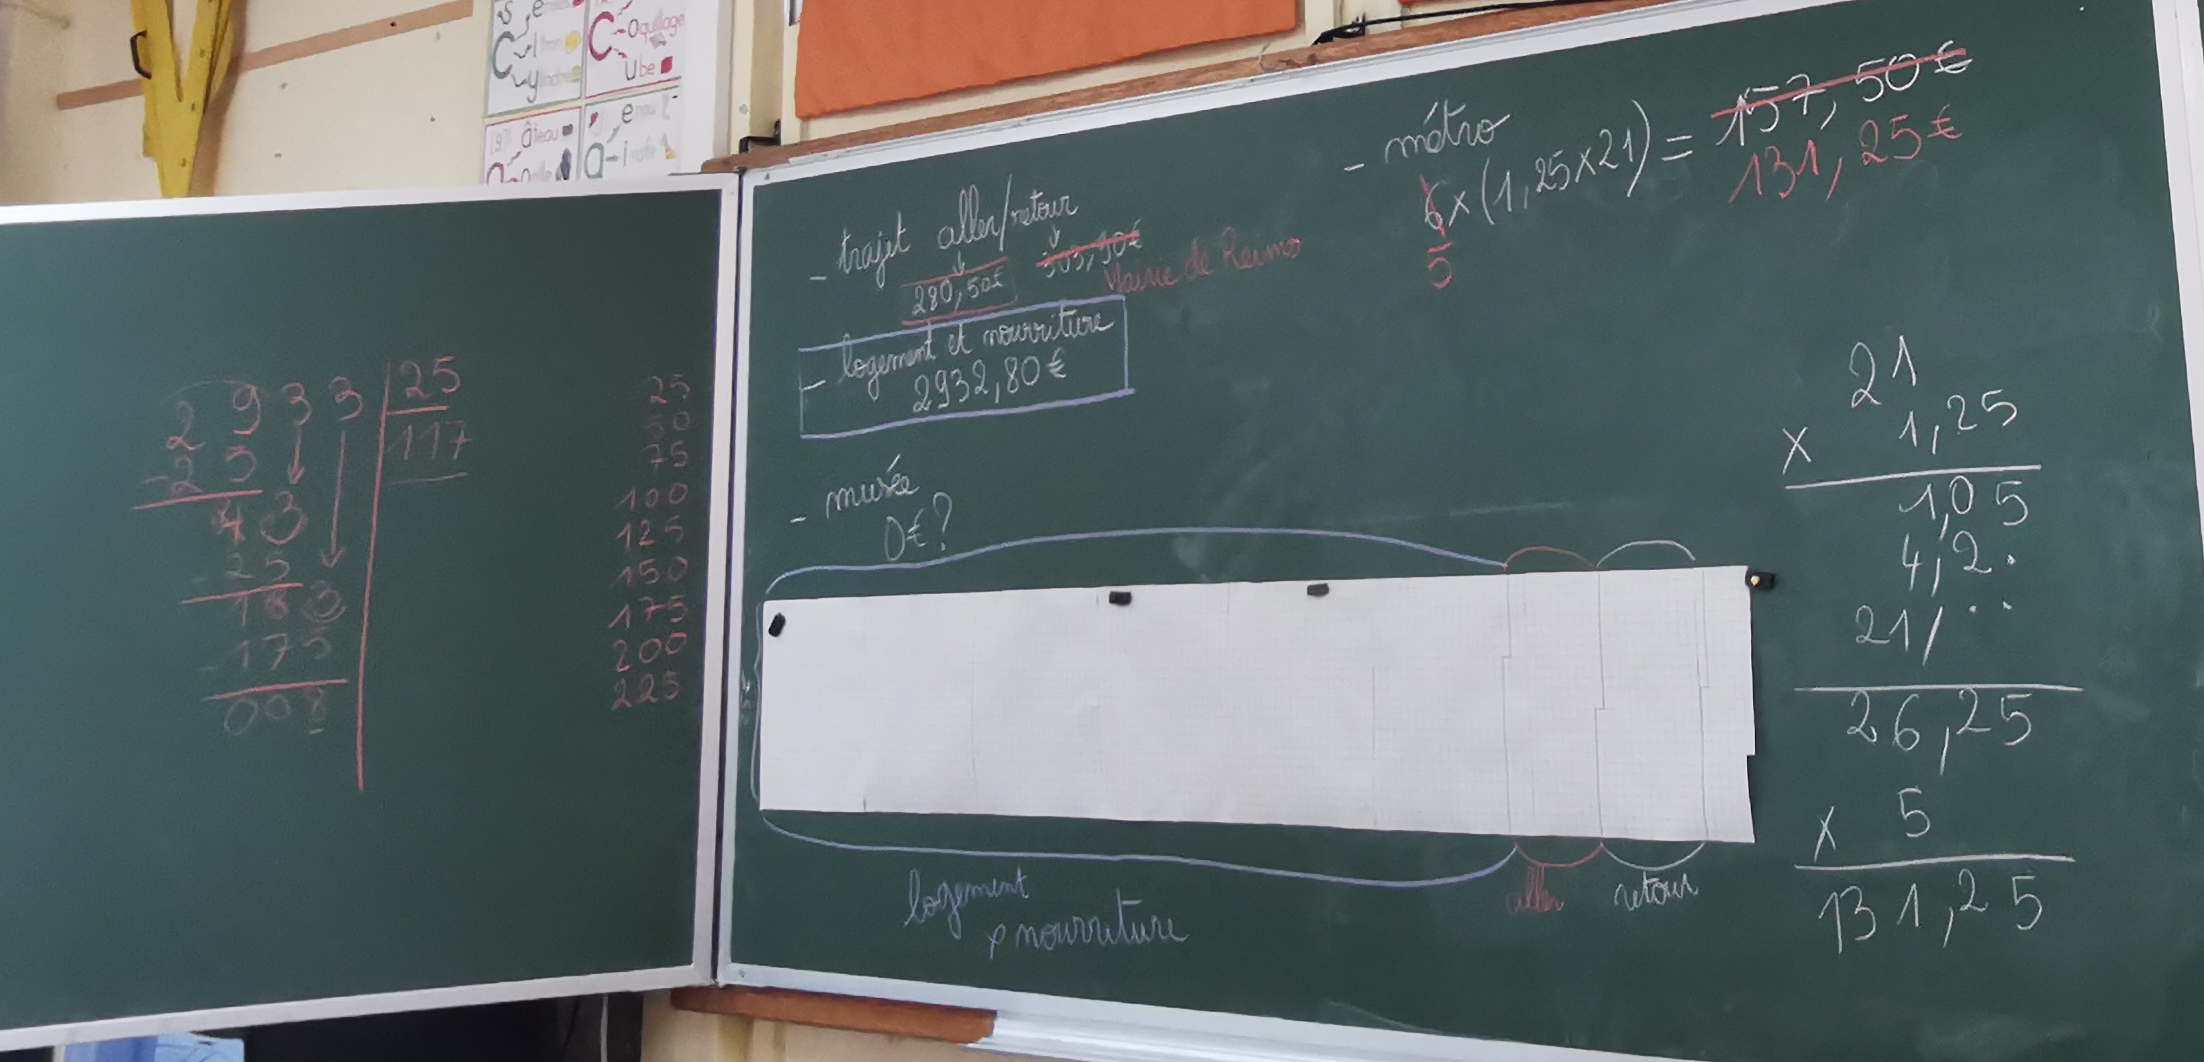 C
itron
ylindre
C
oquillage
ube
âteau
2933 | 25
- 25
117
43
- 25
183
- 175
008
25
50
75
100
125
150
175
200
225
- trajet aller/retour
280,50€ 303,90€
Mairie de Reims
- logement et nourriture
2932,80€
- musée
0€?
- métro
6 x (1,25x21) = 157,50€
5
131,25€
logement
nourriture
aller
retour
21
x 1,25
1,05
4,2.
21,..
26,25
x 5
131,25